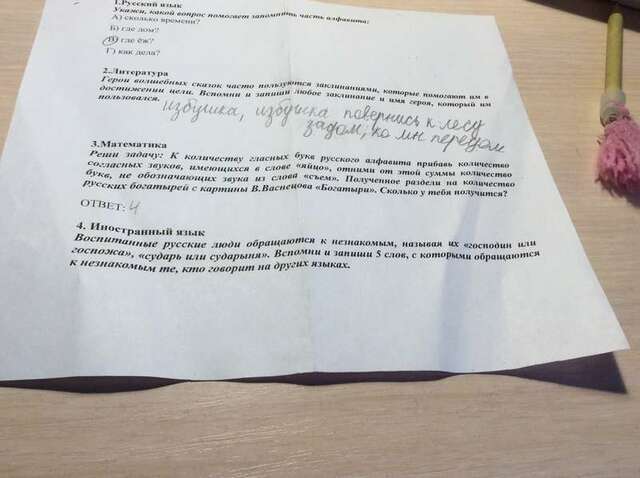 1.Русский язык
Укажи, какой вопрос помогает запомнить часть алфавита:
А) сколько времени?
Б) где дом?
В) где ёж?
Г) как дела?
2.Литература
Герои волшебных сказок часто пользуются заклинаниями, которые помогают им в
достижении цели. Вспомни и запиши любое заклинание и имя героя, который им
пользовался.
избушка, избушка повернись к лесу
задом, ко мн передом
3.Математика
Реши задачу: К количеству гласных букв русского алфавита прибавь количество
согласных звуков, имеющихся в слове «яйцо», отними от этой суммы количество
букв, не обозначающих звука из слова «съем». Полученное раздели на количество
русских богатырей с картины В.Васнецова «Богатыри». Сколько у тебя получится?
ОТВЕТ: 4
4. Иностранный язык
Воспитанные русские люди обращаются к незнакомым, называя их «господин или
госпожа», «сударь или сударыня». Вспомни и запиши 5 слов, с которыми обращаются
к незнакомым те, кто говорит на других языках.